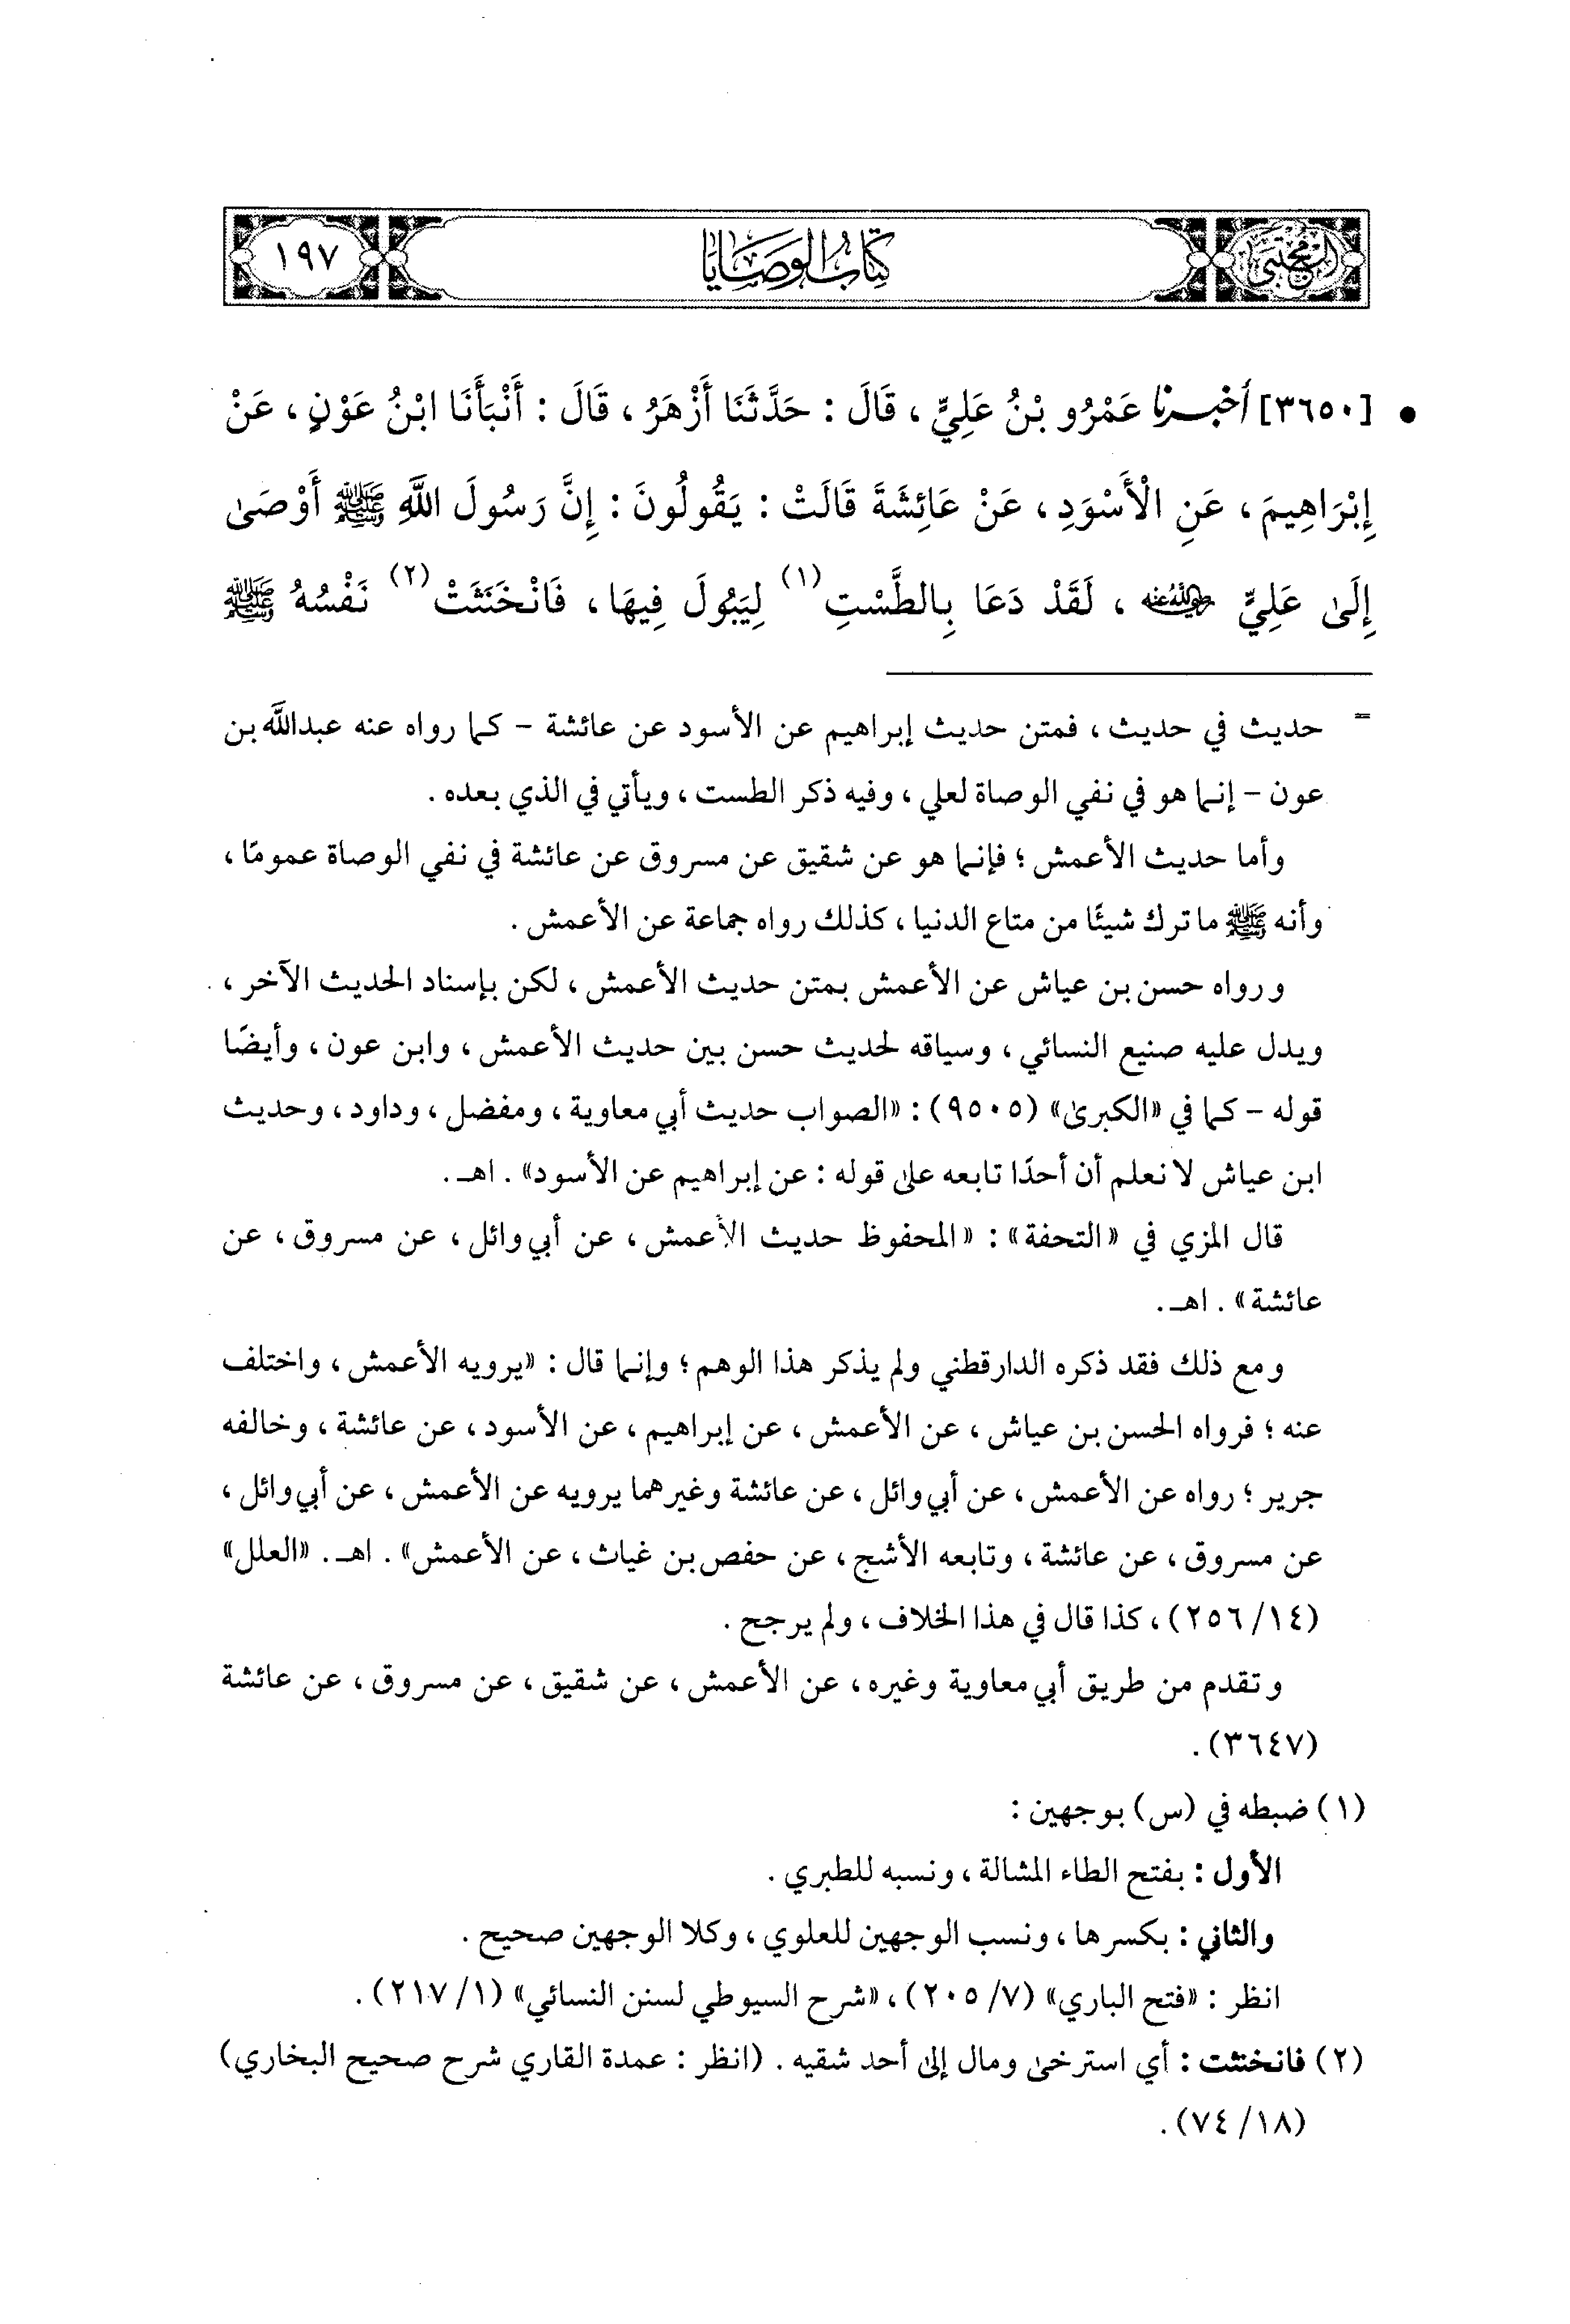 المجتبى
كتاب الوصايا
١٩٧
• [٣٦٥٠] أخبرنا عَمْرُو بْنُ عَلِيٍّ ، قَالَ : حَدَّثَنَا أَزْهَرُ ، قَالَ : أَنْبَأَنَا ابْنُ عَوْنٍ ، عَنْ
إِبْرَاهِيمَ ، عَنِ الْأَسْوَدِ ، عَنْ عَائِشَةَ قَالَتْ : يَقُولُونَ : إِنَّ رَسُولَ اللَّهِ ﷺ أَوْصَىٰ
إِلَىٰ عَلِيٍّ رضي الله عنه ، لَقَدْ دَعَا بِالطَّسْتِ (١) لِيَبُولَ فِيهَا ، فَانْخَنَثَتْ (٢) نَفْسُهُ ﷺ
= حديث في حديث ، فمتن حديث إبراهيم عن الأسود عن عائشة - كما رواه عنه عبداللَّه بن
عون - إنما هو في نفي الوصاة لعلي ، وفيه ذكر الطست ، ويأتي في الذي بعده .
وأما حديث الأعمش ؛ فإنما هو عن شقيق عن مسروق عن عائشة في نفي الوصاة عمومًا ،
وأنه ﷺ ما ترك شيئًا من متاع الدنيا ، كذلك رواه جماعة عن الأعمش .
ورواه حسن بن عياش عن الأعمش بمتن حديث الأعمش ، لكن بإسناد الحديث الآخر ،
ويدل عليه صنيع النسائي ، وسياقه لحديث حسن بين حديث الأعمش ، وابن عون ، وأيضًا
قوله - كما في «الكبرىٰ» (٩٥٠٥) : «الصواب حديث أبي معاوية ، ومفضل ، وداود ، وحديث
ابن عياش لا نعلم أن أحدًا تابعه علىٰ قوله : عن إبراهيم عن الأسود» . اهـ .
قال المزي في «التحفة» : «المحفوظ حديث الأعمش ، عن أبي وائل ، عن مسروق ، عن
عائشة» . اهـ .
ومع ذلك فقد ذكره الدارقطني ولم يذكر هذا الوهم ؛ وإنما قال : «يرويه الأعمش ، واختلف
عنه ؛ فرواه الحسن بن عياش ، عن الأعمش ، عن إبراهيم ، عن الأسود ، عن عائشة ، وخالفه
جرير ؛ رواه عن الأعمش ، عن أبي وائل ، عن عائشة وغيرهما يرويه عن الأعمش ، عن أبي وائل ،
عن مسروق ، عن عائشة ، وتابعه الأشج ، عن حفص بن غياث ، عن الأعمش» . اهـ . «العلل»
(١٤/ ٢٥٦) ، كذا قال في هذا الخلاف ، ولم يرجح .
وتقدم من طريق أبي معاوية وغيره ، عن الأعمش ، عن شقيق ، عن مسروق ، عن عائشة
(٣٦٤٧) .
(١) ضبطه في (س) بوجهين :
الأول : بفتح الطاء المشالة ، ونسبه للطبري .
والثاني : بكسرها ، ونسب الوجهين للعلوي ، وكلا الوجهين صحيح .
انظر : «فتح الباري» (٧/ ٢٠٥) ، «شرح السيوطي لسنن النسائي» (١/ ٢١٧) .
(٢) فانخنثت : أي استرخىٰ ومال إلىٰ أحد شقيه . (انظر : عمدة القاري شرح صحيح البخاري)
(١٨/ ٧٤) .